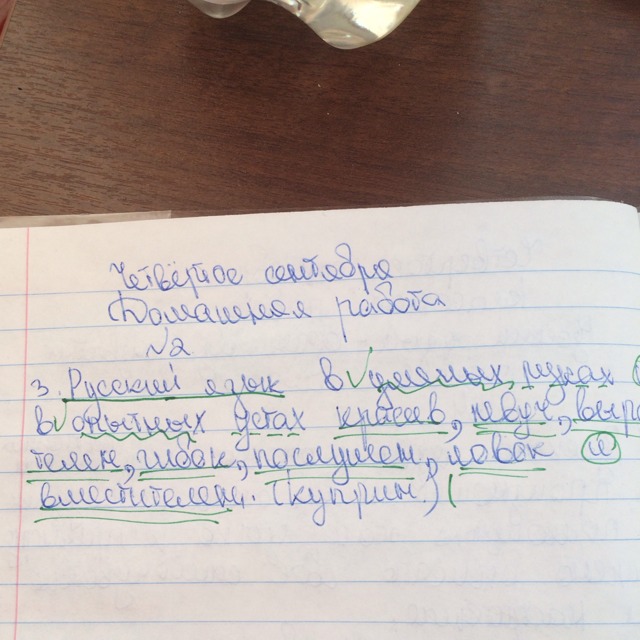 Четвёртое сентября
Домашняя работа
№2
3. Русский язык в умелых руках
в опытных устах красив, певуч, выра
телен, гибок, послушен, ловок и
вместителен. (Куприн.)